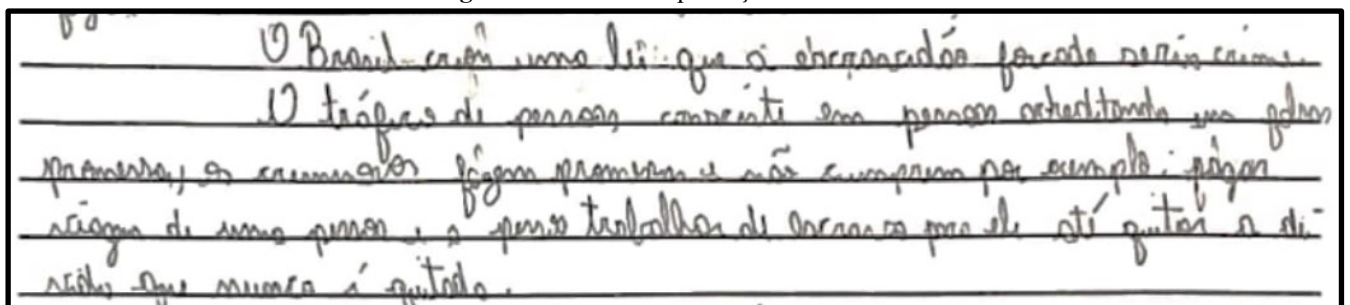 O Brasil criou uma lei que a escravidão forcada seria crime.
O tráfico de pessoas consiste em pessoas acreditando em falsas
promessa, os fazem promessas e não cumprem por exemplo: pagar
viagem de uma pessoa e a pessoa trabalhar de escravo para ele até quitar a dí-
vida que nunca é quitada.